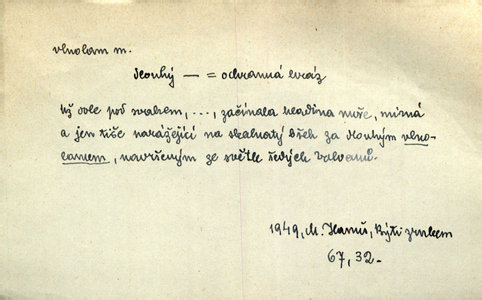 vlnolam m.
dlouhý — = ochranná hráz
Už dole pod svahem, ..., začínala hladina moře, mírná
a jen tiše narážející na skalnatý břeh za dlouhým vlno-
lamem, navršeným ze světle šedých balvanů.
1949, M. Hanuš, Býti zrnkem
67, 32.